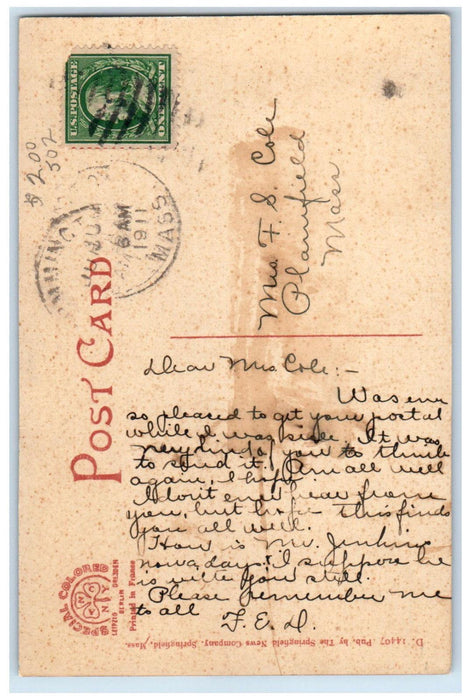 U.S. POSTAGE
ONE CENT
$ 2.00
502
6 AM
1911
MASS.
POST CARD
Mrs F. S. Cole
Plainfield
Mass
Dear Mrs Cole:-
Was ever
so pleased to get your postal
while I was sick. It was
very kind of you to think
to send it. Am all well
again, I hope.
from
you, but hope this finds
you all well.
How is Mr. Jenkins
now a days. I suppose he
is with you still.
Please remember me
to all
F. E. D.
SPECIAL COLORED
N Y
LEIPZIG BERLIN DRESDEN
Printed in France
D. 14407 Pub. by The Springfield News Company, Springfield, Mass.